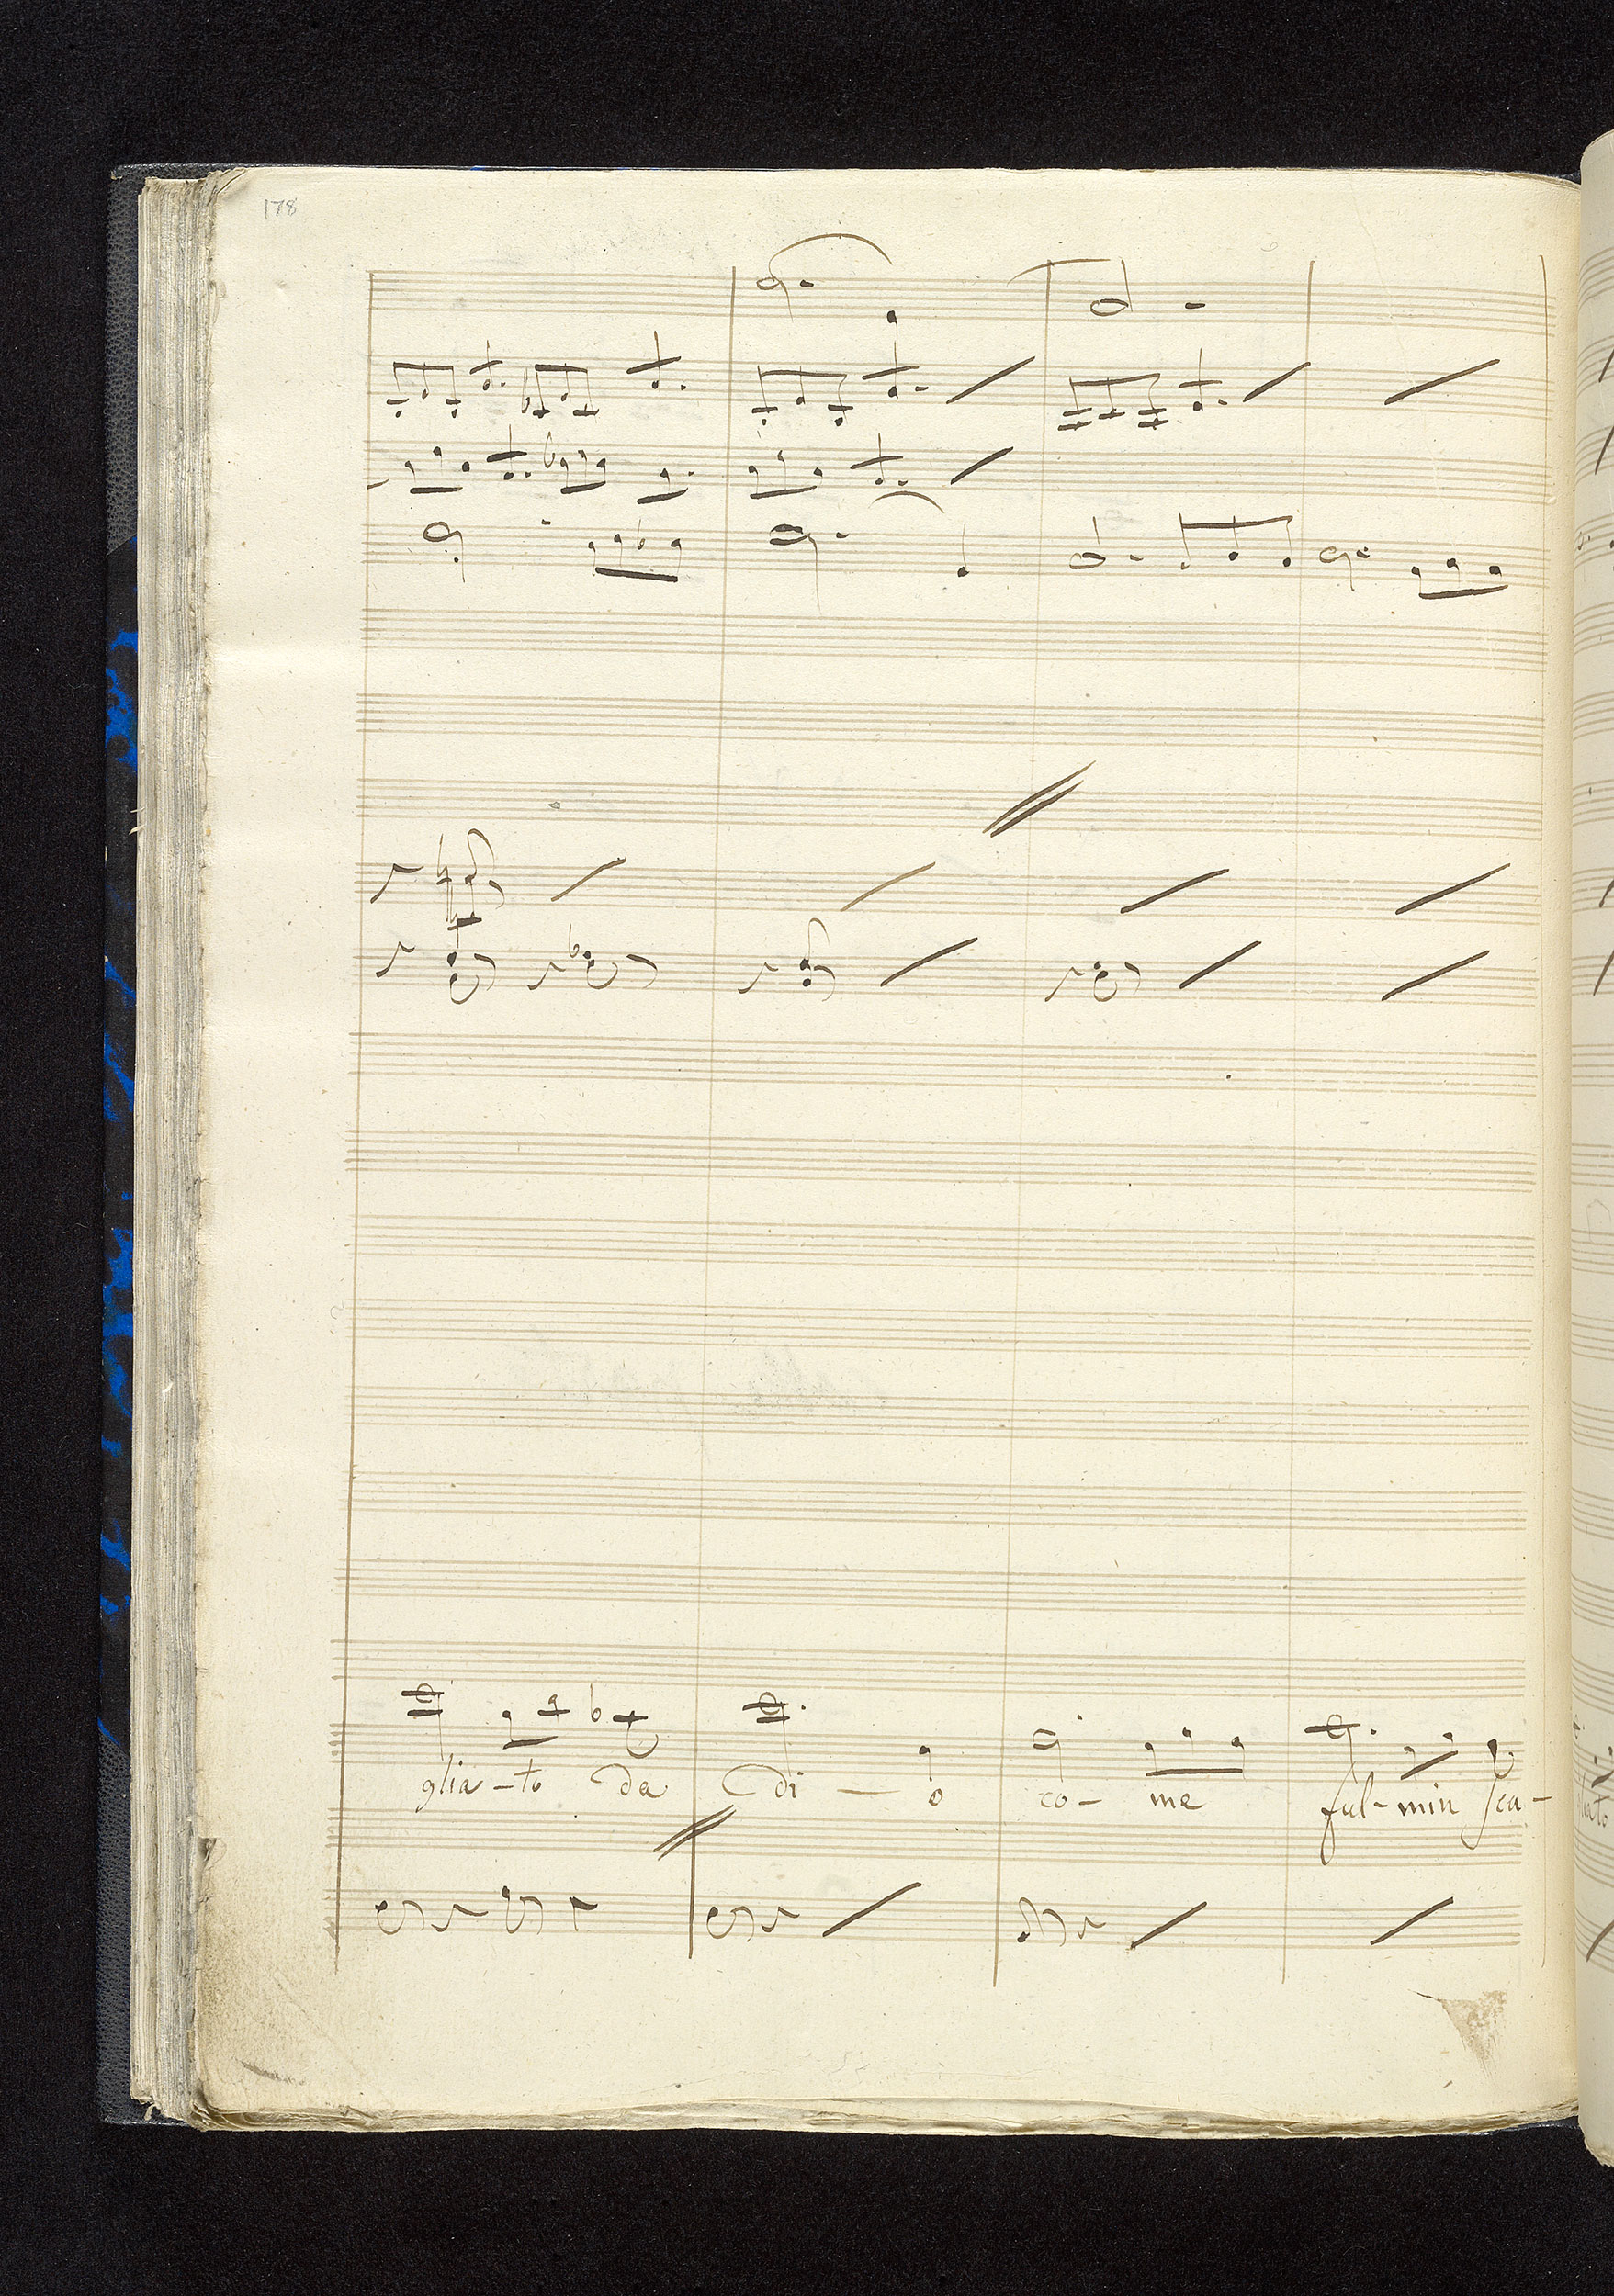 178
glia-to da Di - o co- me ful-min sca-